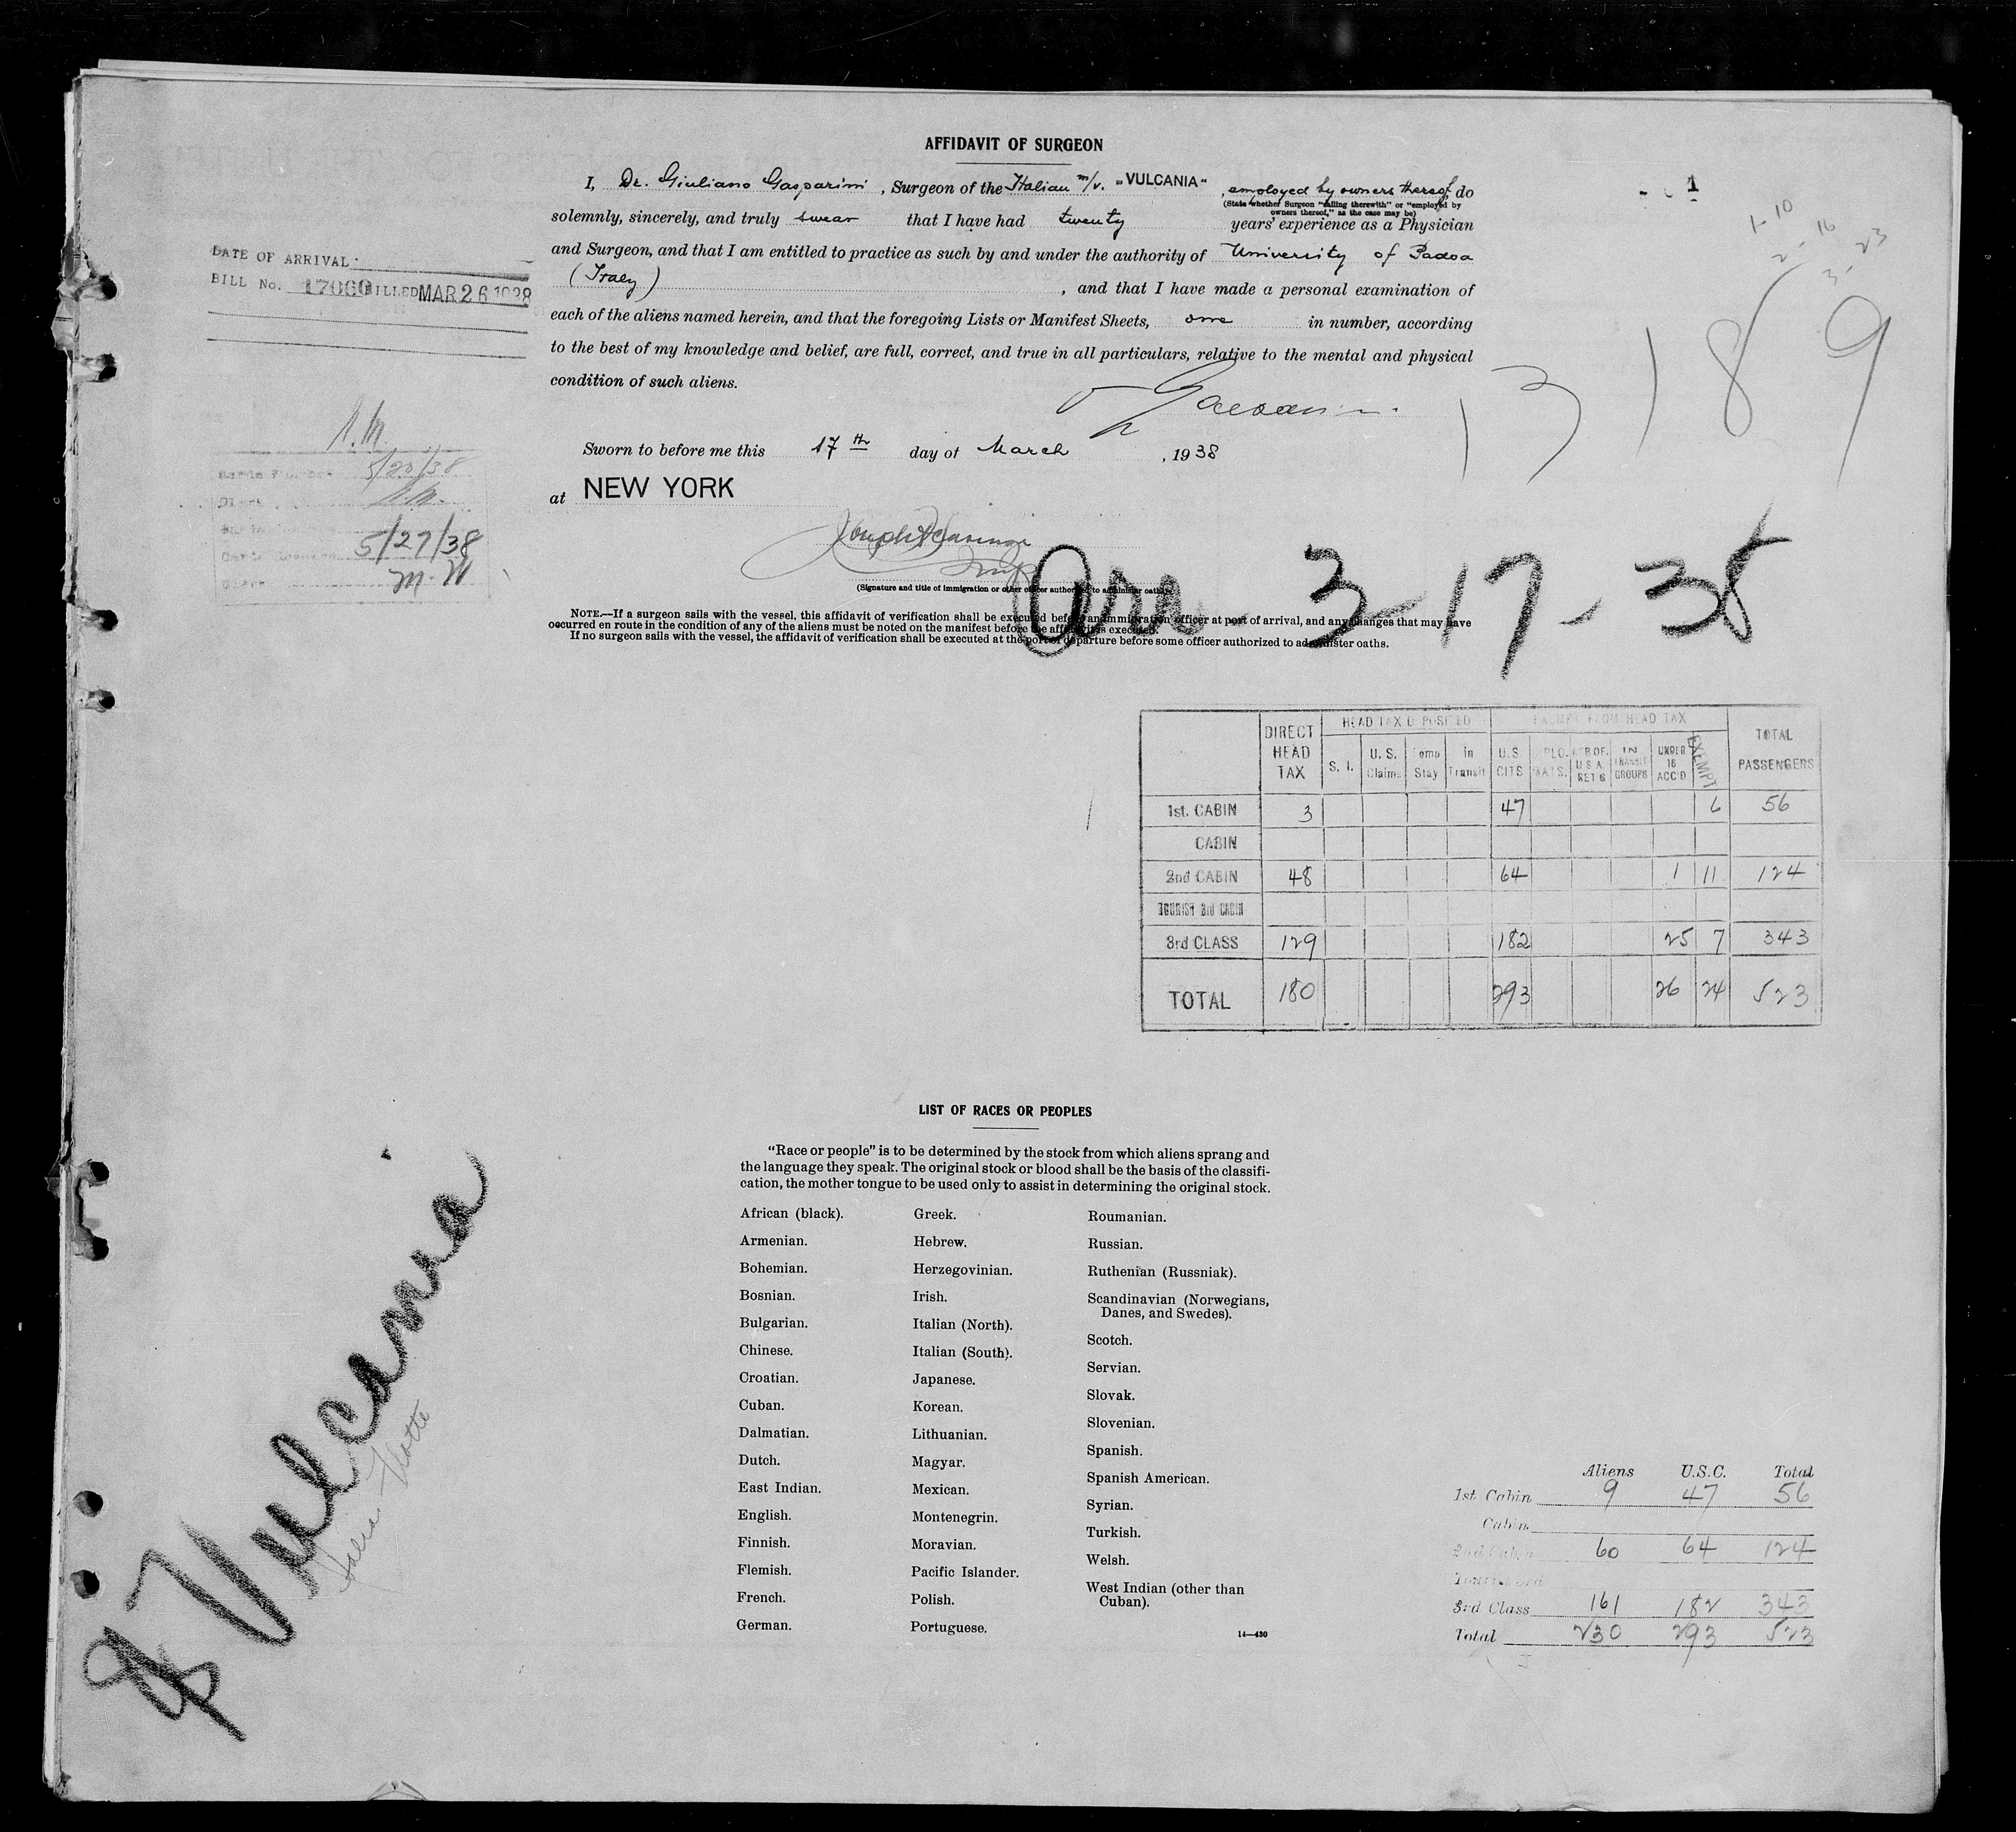 AFFIDAVIT OF SURGEON
I, Dr. Giuliano Gasparini, Surgeon of the Italian m/v. "VULCANIA", employed by owners thereof, do
(State whether Surgeon "sailing therewith" or "employed by
owners thereof," as the case may be)
solemnly, sincerely, and truly swear that I have had twenty years' experience as a Physician
and Surgeon, and that I am entitled to practice as such by and under the authority of University of Padoa
(Italy), and that I have made a personal examination of
each of the aliens named herein, and that the foregoing Lists or Manifest Sheets, one in number, according
to the best of my knowledge and belief, are full, correct, and true in all particulars, relative to the mental and physical
condition of such aliens.
Sworn to before me this 17th day of March, 1938
at NEW YORK
(Signature and title of immigration or other officer authorized to administer oaths)
NOTE.—If a surgeon sails with the vessel, this affidavit of verification shall be executed before an immigration officer at port of arrival, and any changes that may have
occurred en route in the condition of any of the aliens must be noted on the manifest before the affidavit is executed.
If no surgeon sails with the vessel, the affidavit of verification shall be executed at the port of departure before some officer authorized to administer oaths.
1
1-10
2-16
3-23
13189
DATE OF ARRIVAL
BILL No. BILLED MAR 26 1938
5/20/38
5/27/38
M.W
Arr - 3-17-38
DIRECT HEAD TAX
HEAD TAX DEPOSITED
EXEMPT FROM HEAD TAX
TOTAL PASSENGERS
S. I. U. S. Claims Temp Stay in Transit U.S. CITS DIPLOMATS. U.S.A. RET'G IN TRANSIT GROUPS UNDER 16 ACC'D EXEMPT
1st. CABIN 3 47 6 56
CABIN
2nd CABIN 48 64 1 11 124
TOURIST 3rd CABIN
3rd CLASS 129 182 25 7 343
TOTAL 180 293 26 24 523
LIST OF RACES OR PEOPLES
"Race or people" is to be determined by the stock from which aliens sprang and
the language they speak. The original stock or blood shall be the basis of the classifi-
cation, the mother tongue to be used only to assist in determining the original stock.
African (black).
Armenian.
Bohemian.
Bosnian.
Bulgarian.
Chinese.
Croatian.
Cuban.
Dalmatian.
Dutch.
East Indian.
English.
Finnish.
Flemish.
French.
German.
Greek.
Hebrew.
Herzegovinian.
Irish.
Italian (North).
Italian (South).
Japanese.
Korean.
Lithuanian.
Magyar.
Mexican.
Montenegrin.
Moravian.
Pacific Islander.
Polish.
Portuguese.
Roumanian.
Russian.
Ruthenian (Russniak).
Scandinavian (Norwegians,
Danes, and Swedes).
Scotch.
Servian.
Slovak.
Slovenian.
Spanish.
Spanish American.
Syrian.
Turkish.
Welsh.
West Indian (other than
Cuban).
14—430
Vulcania
Aliens U.S.C. Total
1st Cabin 9 47 56
Cabin
2nd Cabin 60 64 124
Tourist 3rd
3rd Class 161 182 343
Total 230 293 523